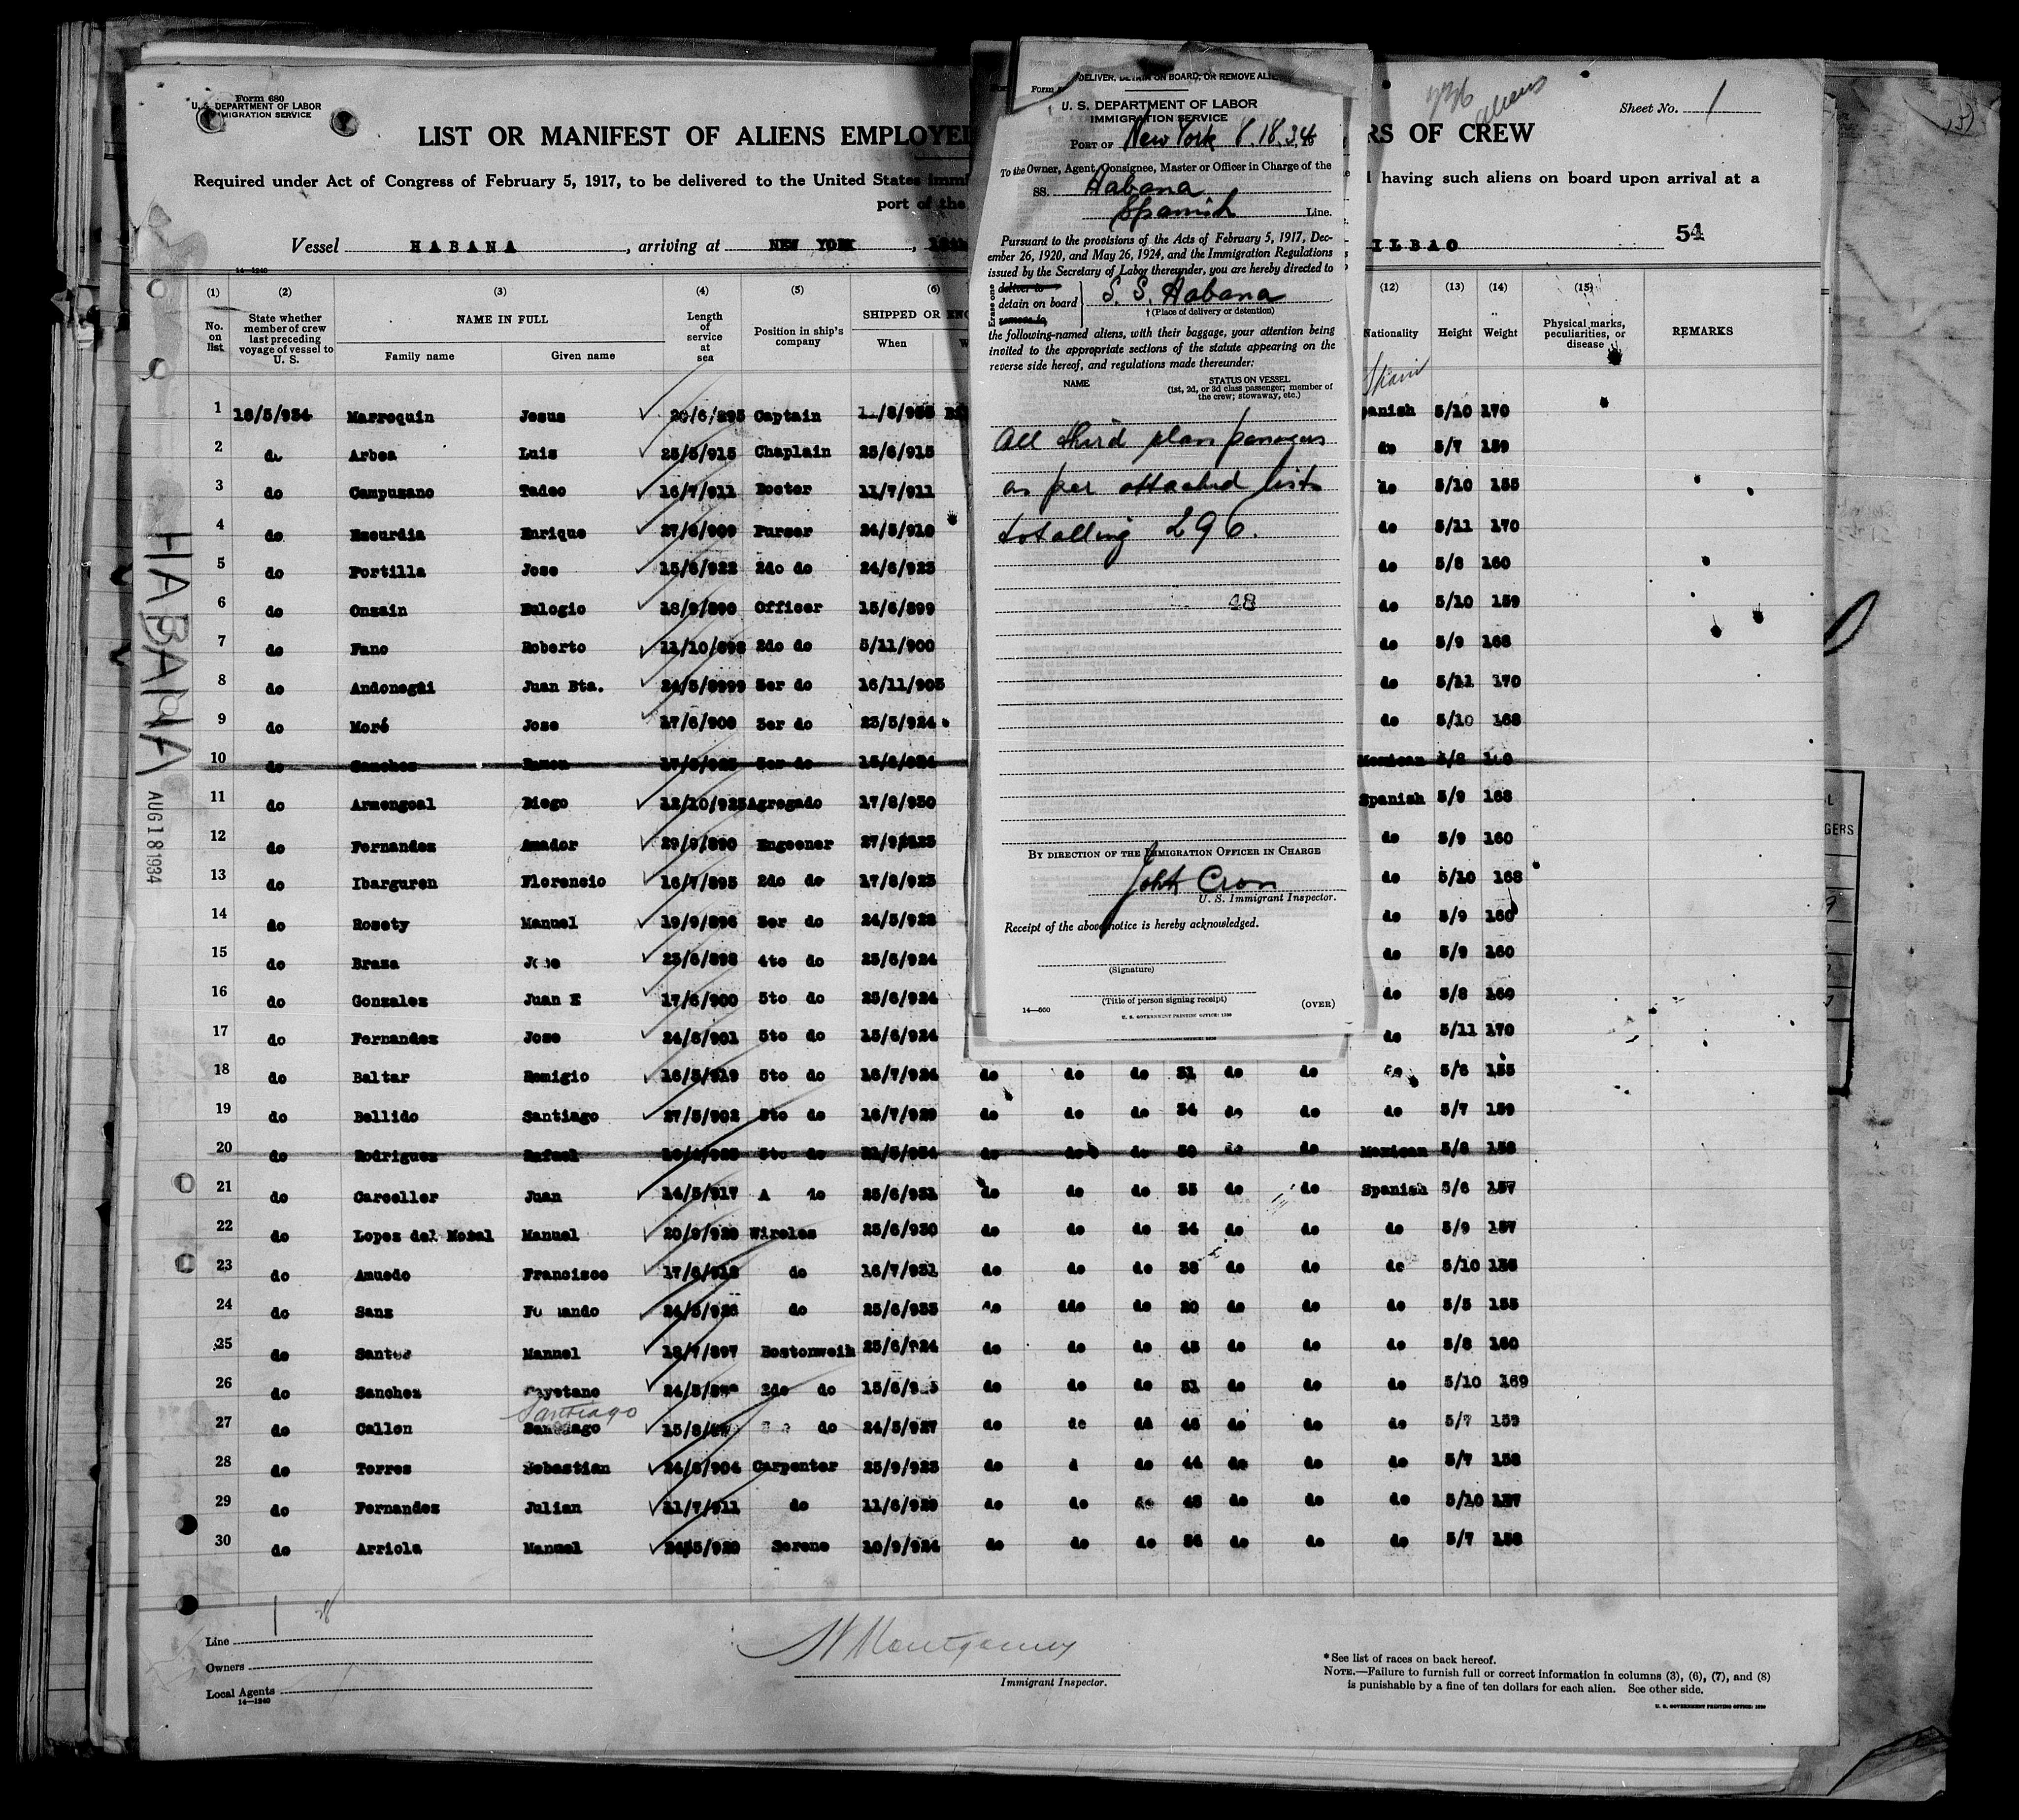 Form 680
U. S. DEPARTMENT OF LABOR
IMMIGRATION SERVICE
aliens
Sheet No. 1
LIST OR MANIFEST OF ALIENS EMPLOYED
RS OF CREW
Required under Act of Congress of February 5, 1917, to be delivered to the United States immi
having such aliens on board upon arrival at a
port of the
Vessel HABANA, arriving at NEW YORK,
ILBAO
54
14—1240
HABANA
AUG 18 1934
(1) (2) (3) (4) (5) (6) (12) (13) (14) (15)
No. on list
State whether member of crew last preceding voyage of vessel to U. S.
NAME IN FULL
Family name Given name
Length of service at sea
Position in ship's company
SHIPPED OR ENG
When W
Nationality Height Weight
Physical marks, peculiarities, or disease
REMARKS
Spain
1 18/5/934 Marroquin Jesus 20/6/895 Captain panish 5/10 170
2 do Arbea Luis 25/5/915 Chaplain 25/6/915 do 5/7 159
3 do Campuzano Tadeo 16/7/911 Docter 11/7/911 do 5/10 155
4 do Enrique 27/6/909 Purser 24/5/910 do 5/11 170
5 do Portilla Jose 15/6/922 2do do 24/6/923 do 5/8 160
6 do Onzain Eulogio 18/9/890 Officer 15/6/899 do 5/10 159
7 do Fano Roberto 11/10/898 2do do 5/11/900 do 5/9 168
8 do Andonegui Juan Bta. 24/5/8999 3er do 16/11/905 do 5/11 170
9 do Moré Jose 17/6/900 3er do 23/5/924 do 5/10 168
10 do Sanchez Ramon 3er do Mexican 5/8
11 do Armengoal Diego 12/10/925 Agregado 17/8/930 Spanish 5/9 168
12 do Fernandez Amador 29/9/890 Engeener do 5/9 160
13 do Ibarguren Florencio 16/7/895 2do do 17/8/923 do 5/10 168
14 do Rosety Manuel 19/9/896 3er do 24/5/928 do 5/9 160
15 do Braza Jose 25/6/898 4to do 25/6/924 do 5/9 160
16 do Gonzalez Juan E 17/6/900 5to do 25/6/924 do 5/8 160
17 do Fernandez Jose 24/6/901 5to do 15/6/924 do 5/11 170
18 do Baltar Remigio 16/5/919 5to do 16/7/924 do do do 31 do do do 5/6 155
19 do Bellido Santiago 27/5/902 5to do 16/7/929 do do do 34 do do do 5/7 159
20 do Rodriguez Rafael 5to do do do do 30 do do Mexican 5/8 158
21 do Carceller Juan 14/5/917 A do 25/6/931 do do do 35 do do Spanish 5/6 157
22 do Lopez del Moral Manuel 20/9/929 Wireles 25/6/930 do do do 34 do do do 5/9 157
23 do Amuedo Francisco 17/6/918 do 16/7/931 do do do 38 do do do 5/10 156
24 do Sanz 24/5/926 do 25/6/933 do ddo do 20 do do do 5/5 155
25 do Santos Manuel 18/7/897 25/6/924 do do do 45 do do do 5/8 160
26 do Sanchez Cayetano 2do do do do do 51 do do do 5/10 169
Santiago
27 do Callen Santiago do 24/5/927 do do do 46 do do do 5/7 159
28 do Torres Sebastian 24/5/904 Carpenter 25/9/923 do d do 44 do do do 5/7 158
29 do Fernandez Julian 21/7/911 do 11/6/929 do do do 48 do do do 5/10 157
30 do Arriola Manuel Sereno 10/9/924 do do do 56 do do do 5/7 158
DELIVER, DETAIN ON BOARD, OR REMOVE ALIE
Form
U. S. DEPARTMENT OF LABOR
IMMIGRATION SERVICE
PORT OF New York 8.18.34
To the Owner, Agent, Consignee, Master or Officer in Charge of the
SS. Habana
Spanish Line.
Pursuant to the provisions of the Acts of February 5, 1917, Dec-
ember 26, 1920, and May 26, 1924, and the Immigration Regulations
issued by the Secretary of Labor thereunder, you are hereby directed to
Erase one
deliver to
detain on board S. S. Habana
remove to
† (Place of delivery or detention)
the following-named aliens, with their baggage, your attention being
invited to the appropriate sections of the statute appearing on the
reverse side hereof, and regulations made thereunder:
NAME STATUS ON VESSEL
(1st, 2d, or 3d class passenger; member of
the crew; stowaway, etc.)
All third
as per attached lists
totalling 296.
48
BY DIRECTION OF THE IMMIGRATION OFFICER IN CHARGE
John Cron
U. S. Immigrant Inspector.
Receipt of the above notice is hereby acknowledged.
(Signature)
(Title of person signing receipt)
14—500
(OVER)
U. S. GOVERNMENT PRINTING OFFICE: 1930
GERS
Line
Owners
Local Agents
14—1240
Montgomery
Immigrant Inspector.
* See list of races on back hereof.
NOTE.—Failure to furnish full or correct information in columns (3), (6), (7), and (8)
is punishable by a fine of ten dollars for each alien. See other side.
U. S. GOVERNMENT PRINTING OFFICE: 1930